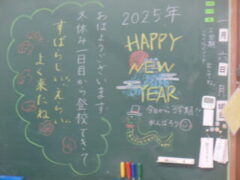 おはようございます
冬休み一日目から登校できて
すばらしい、えらい
よく来たね
2025年
HAPPY
NEW
YEAR
今日から3学期
がんばろう
一月
日